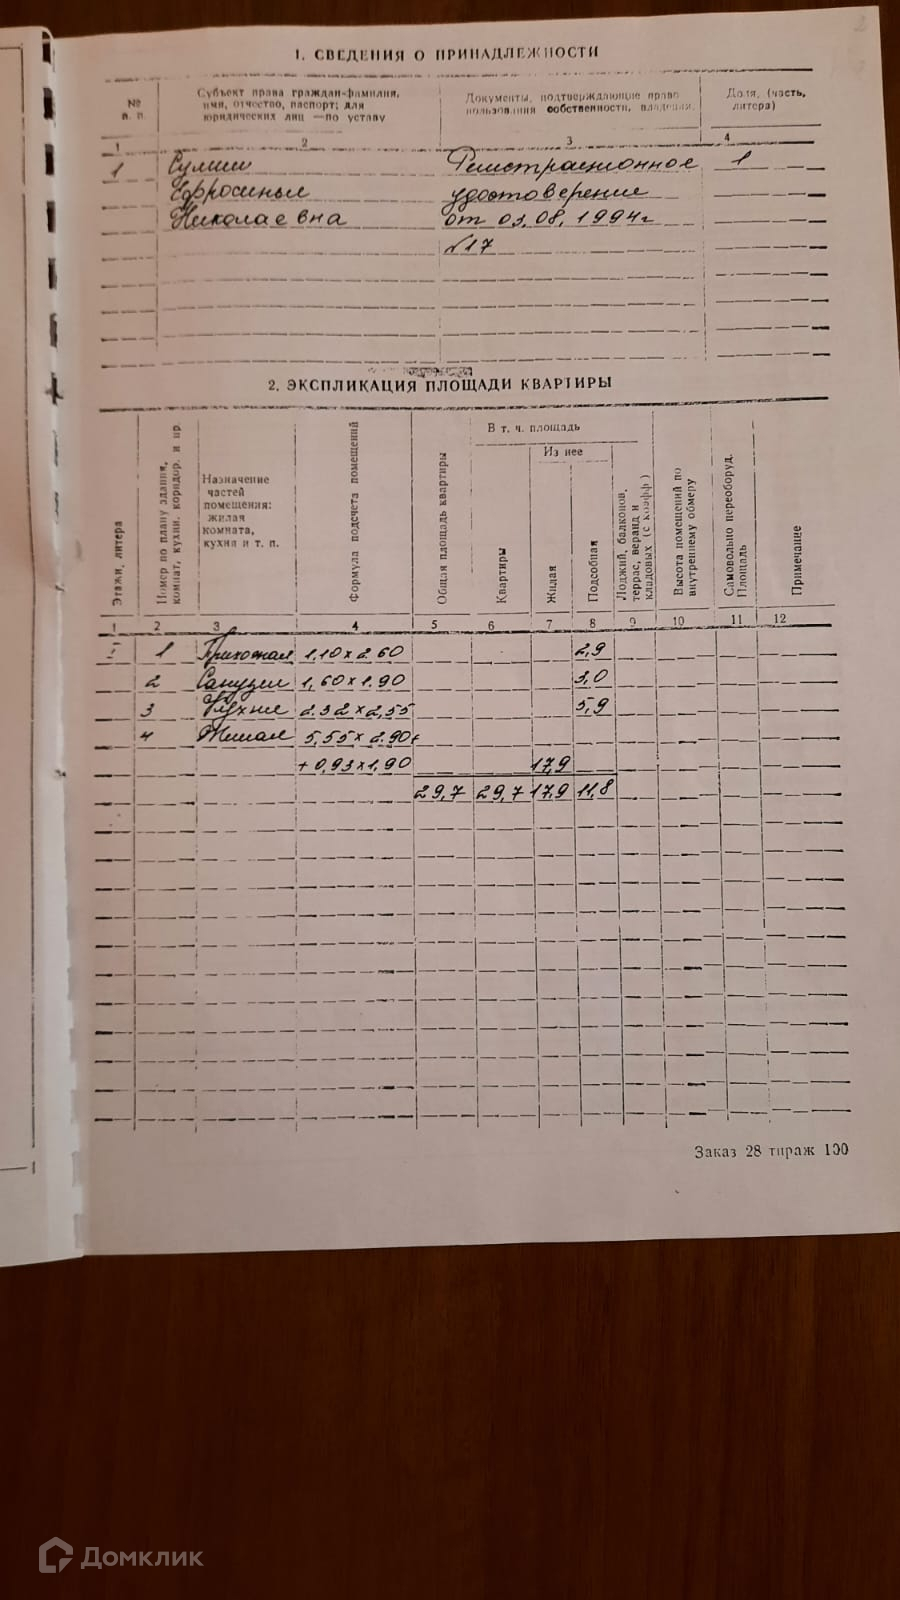 1. СВЕДЕНИЯ О ПРИНАДЛЕЖНОСТИ
№ п. п.
Субъект права граждан-фамилия, имя, отчество, паспорт; для юридических лиц —по уставу
Документы, подтверждающие право пользования собственности, владения.
Доля, (часть, литера)
1 2 3 4
1 Регистрационное 1
Ефросинья удостоверение
Николаевна от 03.08.1994г
№17
2. ЭКСПЛИКАЦИЯ ПЛОЩАДИ КВАРТИРЫ
Этажи, литера
Номер по плану здания, комнат, кухни, коридор. и пр.
Назначение частей помещения: жилая комната, кухня и т. п.
Формула подсчета помещений
Общая площадь квартиры
В т. ч. площадь
Квартиры
Из нее
Жилая
Подсобная
Лоджий, балконов, террас, веранд и кладовых (с коэфф)
Высота помещений по внутреннему обмеру
Самовольно переоборуд. Площадь
Примечание
1 2 3 4 5 6 7 8 9 10 11 12
1 Прихожая 1,10 x 2.60 2,9
2 Санузел 1,60 x 1.90 3,0
3 Кухня 2.32 x 2,55 5,9
4 Жилая 5,55 x 2.90+
+ 0,93 x 1,90 17,9
29,7 29,7 17,9 11,8
Заказ 28 тираж 100
Домклик